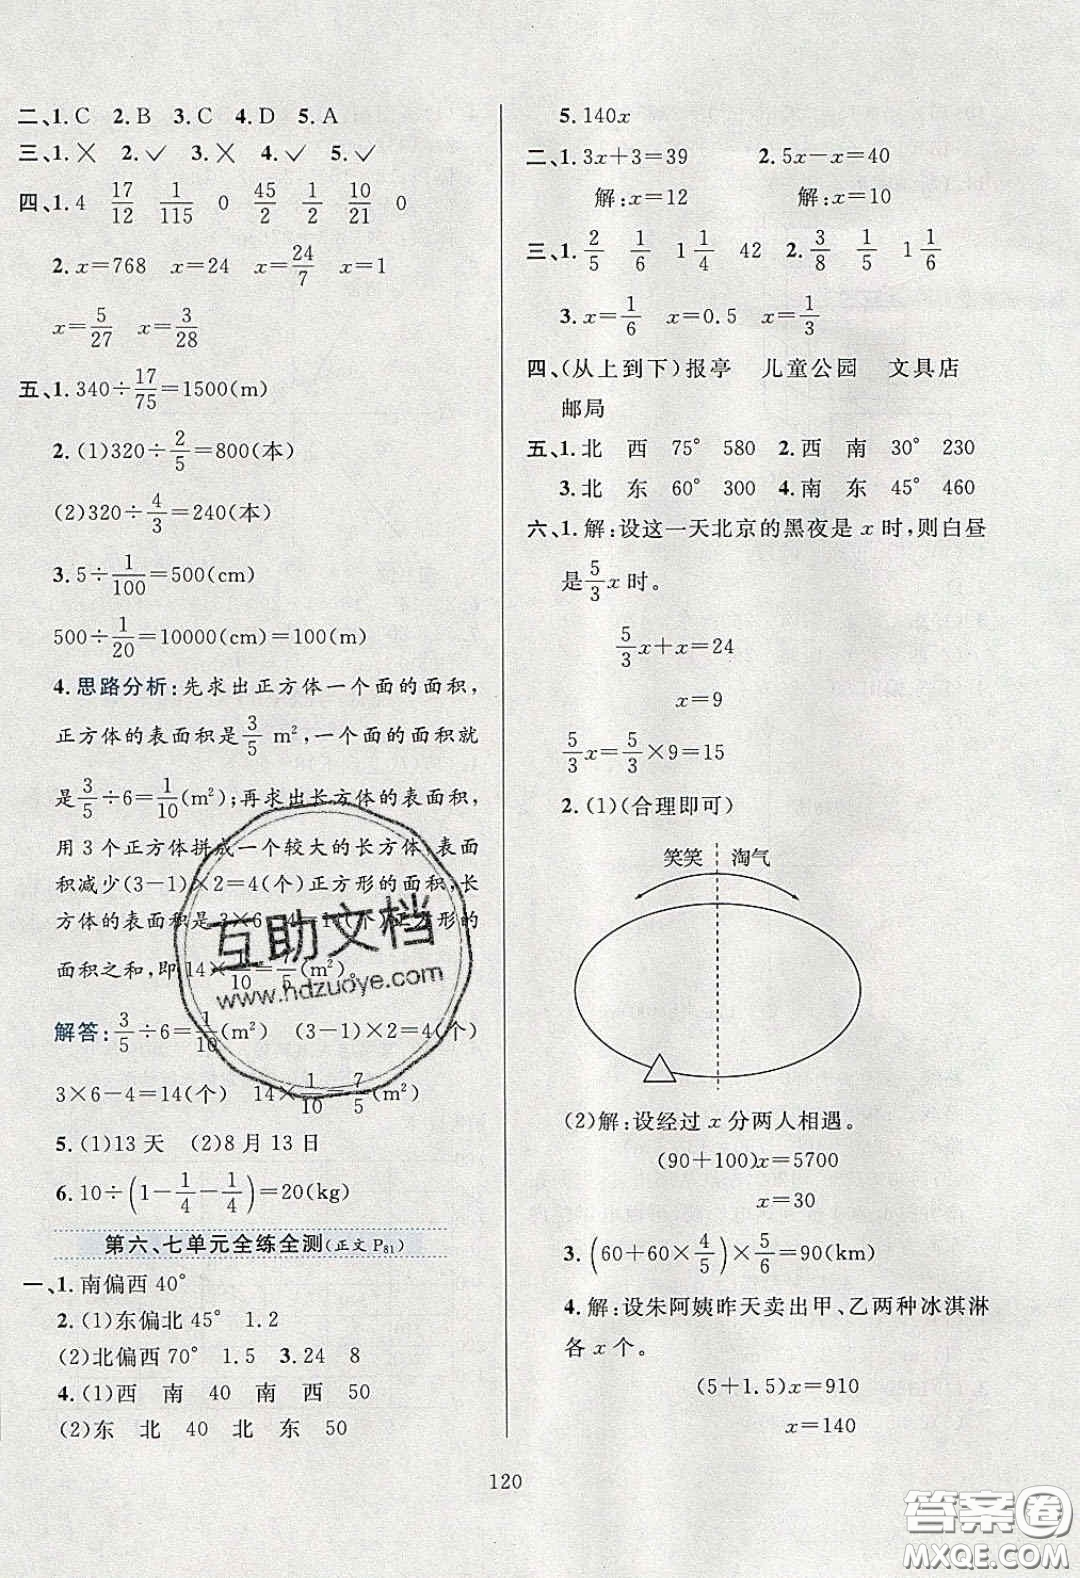 二、1. C  2. B  3. C  4. D  5. A
三、1. ✕  2. ✓  3. ✕  4. ✓  5. ✓
四、1. 4  17/12  1/115  0  45/2  1/2  10/21  0
2. x=768  x=24  x=24/7  x=1
x=5/27  x=3/28
五、1. 340÷17/75=1500(m)
2. (1)320÷2/5=800(本)
(2)320÷4/3=240(本)
3. 5÷1/100=500(cm)
500÷1/20=10000(cm)=100(m)
4. 思路分析:先求出正方体一个面的面积,
正方体的表面积是3/5 m²,一个面的面积就
是3/5÷6=1/10(m²);再求出长方体的表面积,
用3个正方体拼成一个较大的长方体,表面
积减少(3-1)×2=4(个)正方形的面积,长
方体的表面积是3×6-4=14(个)正方形的
面积之和,即14×1/10=7/5(m²)。
解答:3/5÷6=1/10(m²)  (3-1)×2=4(个)
3×6-4=14(个)  14×1/10=7/5(m²)
5. (1)13天  (2)8月13日
6. 10÷(1-1/4-1/4)=20(kg)
第六、七单元全练全测(正文P81)
一、1. 南偏西40°
2. (1)东偏北45°  1.2
(2)北偏西70°  1.5  3. 24  8
4. (1)西  南  40  南  西  50
(2)东  北  40  北  东  50
5. 140x
二、1. 3x+3=39  2. 5x-x=40
解:x=12  解:x=10
三、1. 2/5  1/6  1 1/4  42  2. 3/8  1/5  1 1/6
3. x=1/6  x=0.5  x=1/3
四、(从上到下)报亭  儿童公园  文具店
邮局
五、1. 北  西  75°  580  2. 西  南  30°  230
3. 北  东  60°  300  4. 南  东  45°  460
六、1. 解:设这一天北京的黑夜是x时,则白昼
是5/3x时。
5/3x+x=24
x=9
5/3x=5/3×9=15
2. (1)(合理即可)
笑笑  淘气
(2)解:设经过x分两人相遇。
(90+100)x=5700
x=30
3. (60+60×4/5)×5/6=90(km)
4. 解:设朱阿姨昨天卖出甲、乙两种冰淇淋
各x个。
(5+1.5)x=910
x=140
120
互助文档
www.hdzuoye.com
答案圈
MXQE.COM